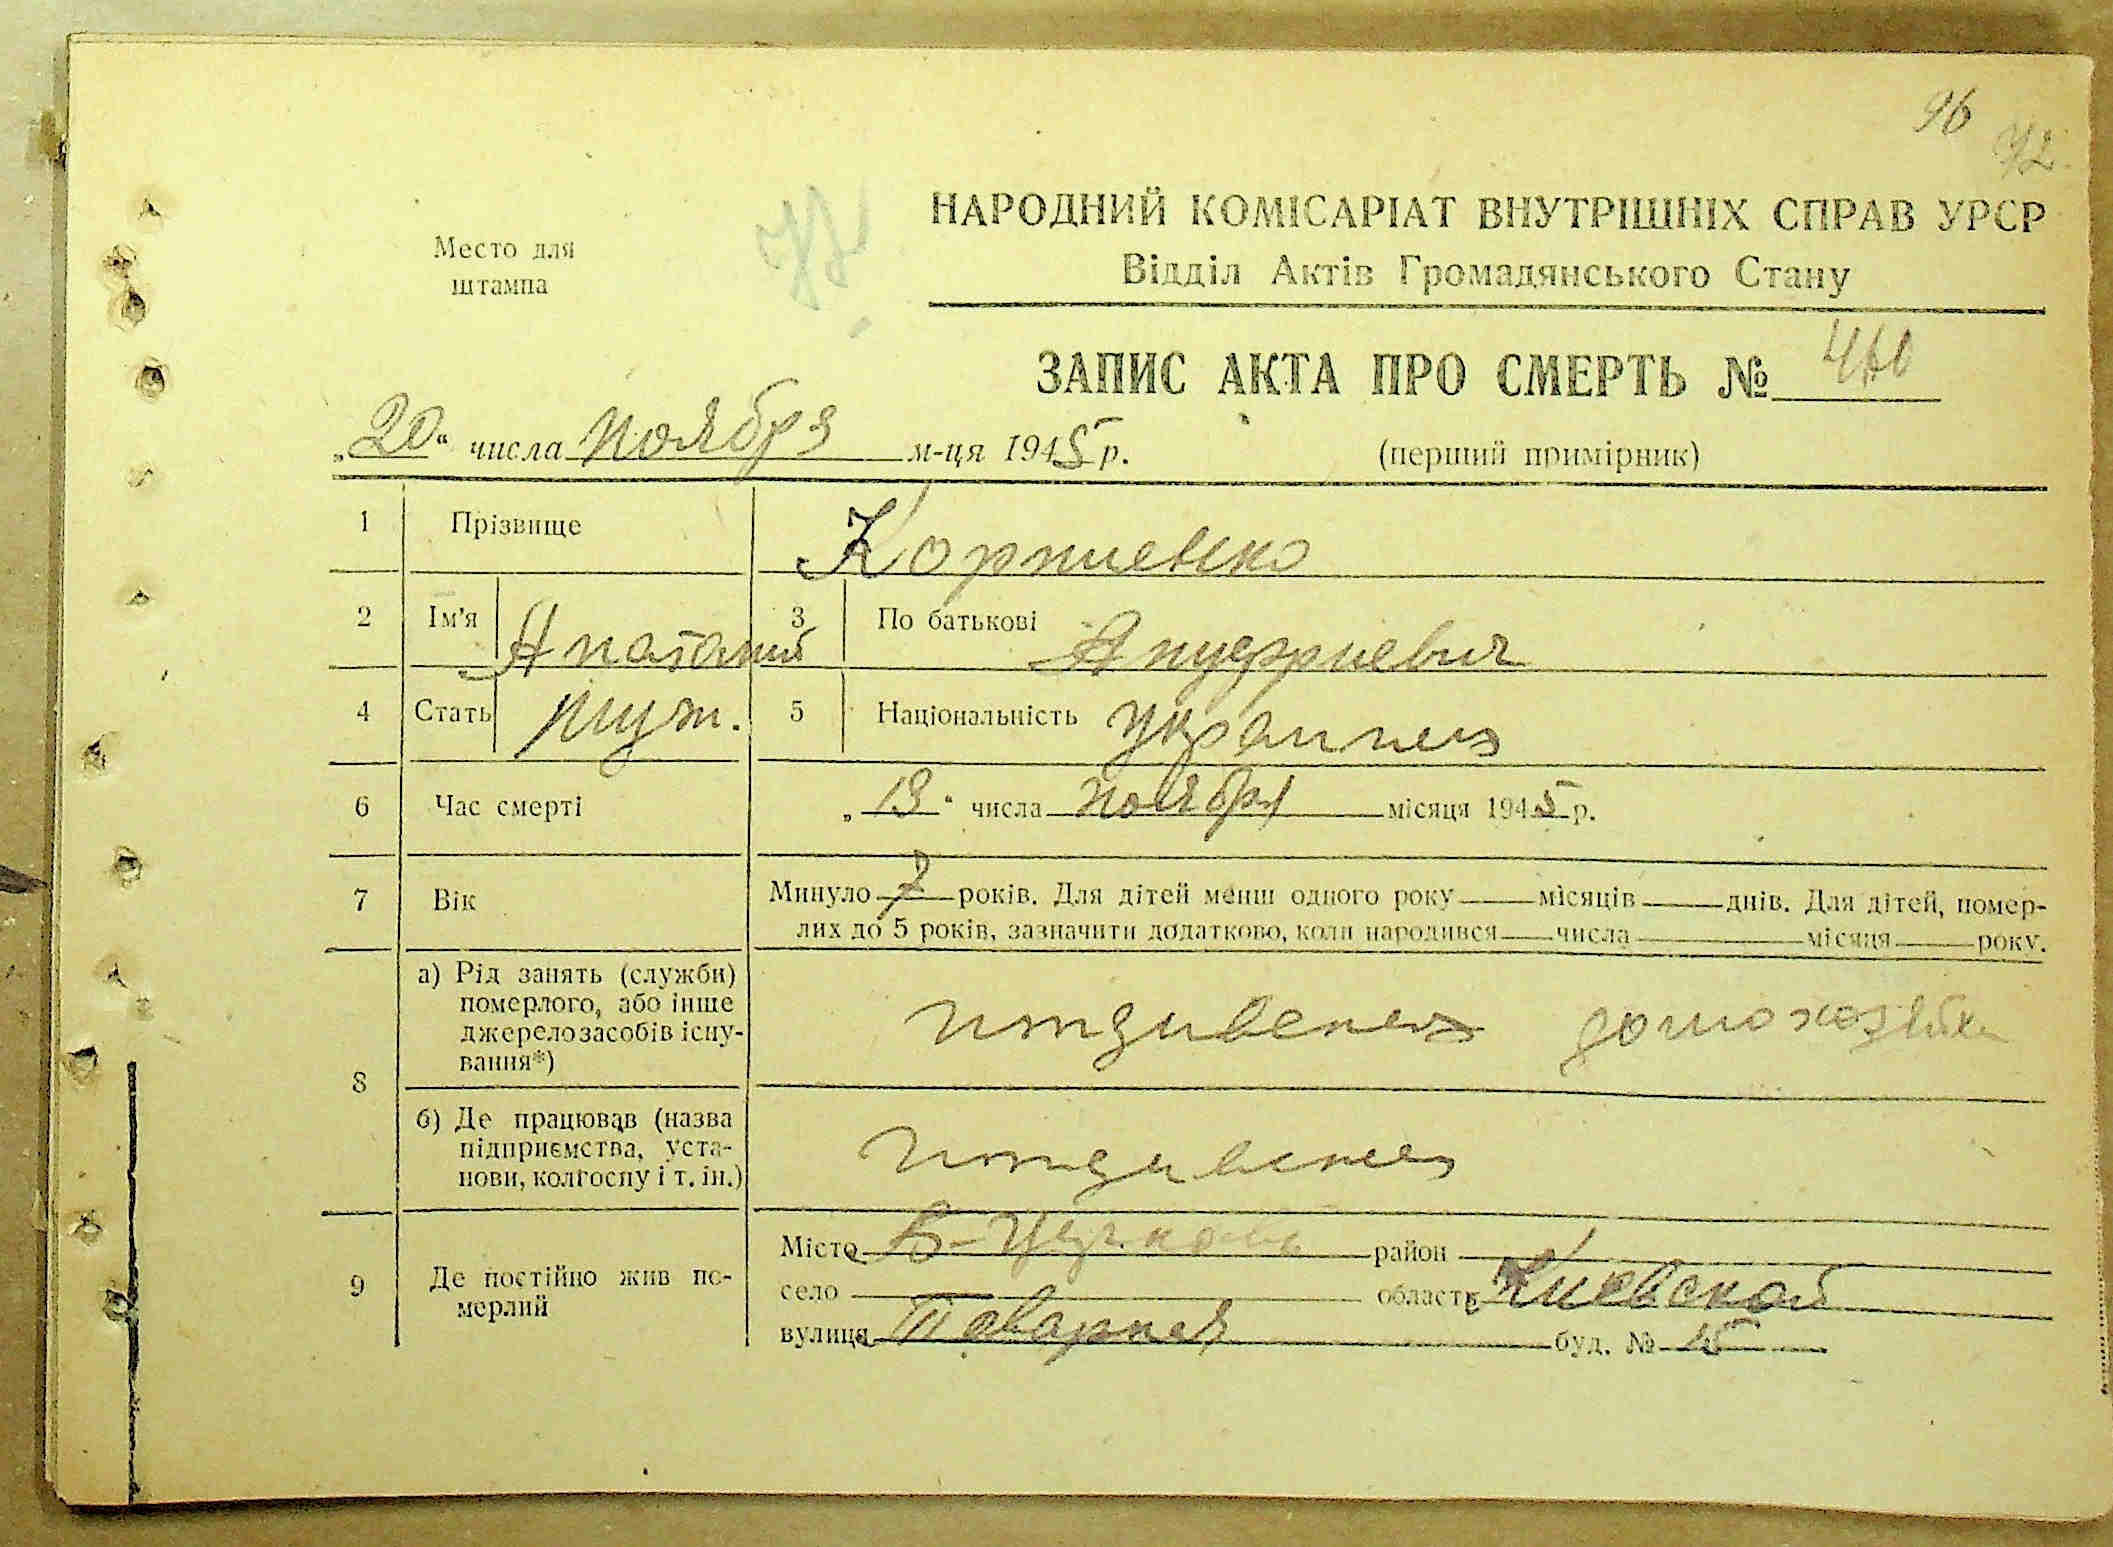 96
72
Место для
штампа
НАРОДНИЙ КОМІСАРІАТ ВНУТРІШНІХ СПРАВ УРСР
Відділ Актів Громадянського Стану
ЗАПИС АКТА ПРО СМЕРТЬ №
„20“ числа ноября м-ця 1945 р. (перший примірник)
1 Прізвище Корниенко
2 Ім'я Анатолий 3 По батькові
4 Стать муж. 5 Національність
6 Час смерті „13“ числа ноября місяця 1945 р.
7 Вік Минуло 7 років. Для дітей менш одного року місяців днів. Для дітей, помер-
лих до 5 років, зазначити додатково, коли народився числа місяця року.
8 а) Рід занять (служби)
померлого, або інше
джерело засобів існу-
вання*)
иждивенец домохозяйки
б) Де працював (назва
підприємства, уста-
нови, колгоспу і т. ін.)
иждивенец
9 Де постійно жив по-
мерлий
Місто Б-Церковь район
село область Киевской
вулиця Товарная буд. № 15